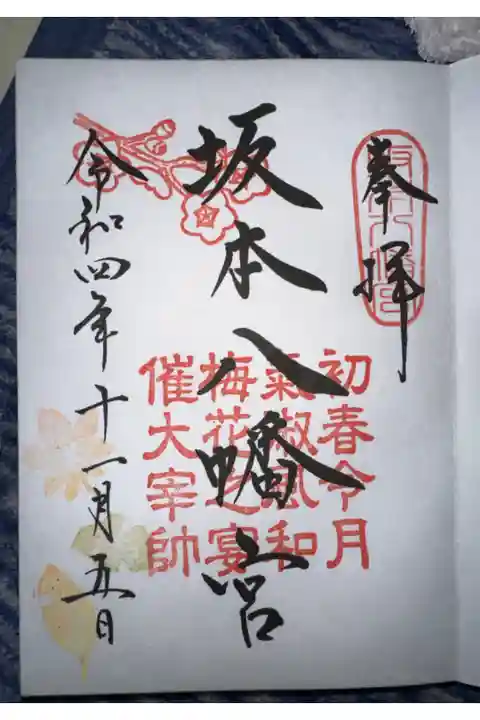 奉拝
坂本八幡宮
初春令月
氣淑風和
梅花之宴
催大宰帥
令和四年十一月五日